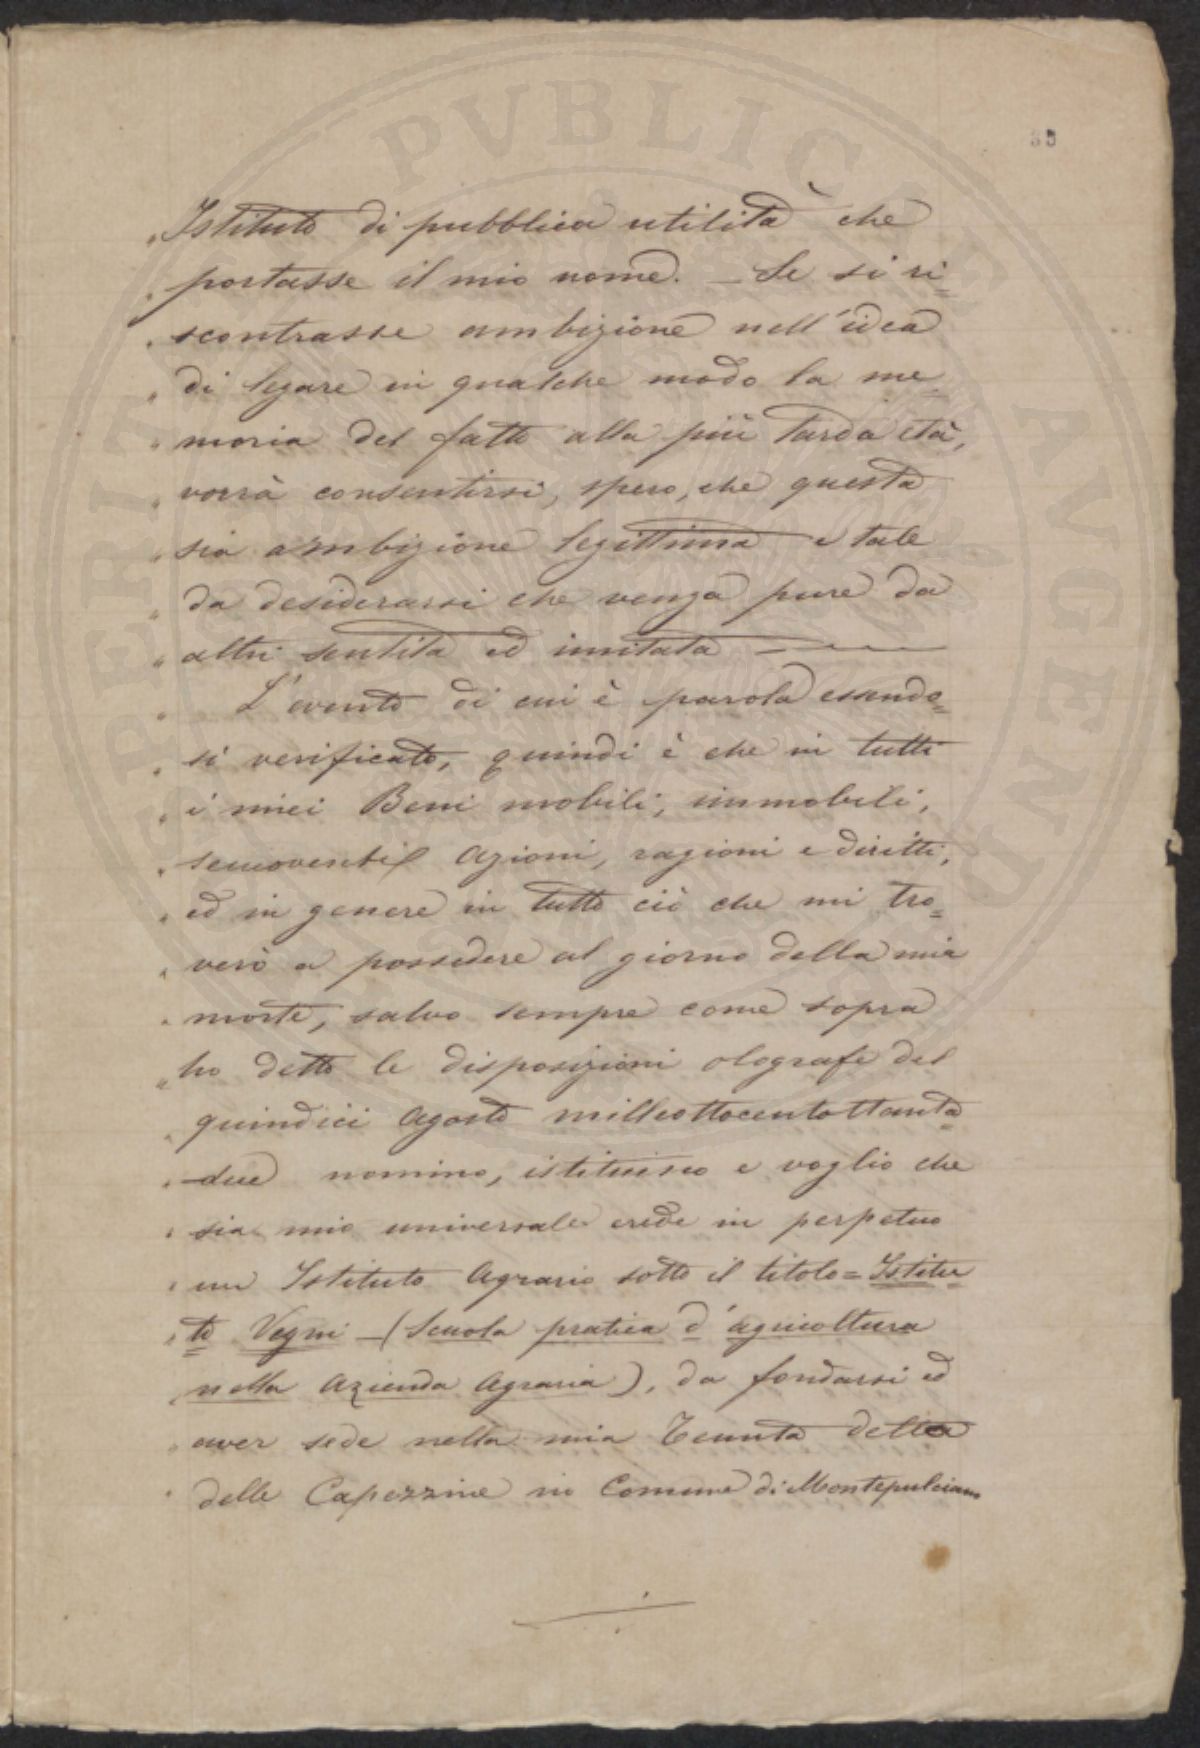 35
" Istituto di pubblica utilità che
" portasse il mio nome. — Se si ri=
" scontrasse ambizione nell'idea
" di legare in qualche modo la me
" moria del fatto alla più tarda età,
" vorrà consentirsi, spero, che questa
" sia ambizione legittima e tale
" da desiderarsi che venga pure da
" altri sentita ed imitata —
" L'evento di cui è parola essendo=
" si verificato, quindi è che in tutti
" i miei Beni mobili, immobili,
" semoventi Azioni, ragioni e diritti,
" ed in genere in tutto ciò che mi tro=
" verò a possedere al giorno della mia
" morte, salvo sempre come sopra
" ho detto le disposizioni olografe del
" quindici Agosto milleottocentottanta=
" due nomino, istituisco e voglio che
" sia mio universale erede in perpetuo
" un Istituto Agrario sotto il titolo = Istitu=
" to Vegni — (Scuola pratica d'agricoltura
" nella Azienda Agraria), da fondarsi ed
" aver sede nella mia Tenuta della
" delle Capezzine in Comune di Montepulciano
PERITVRA PVBLICE AVGENTVR